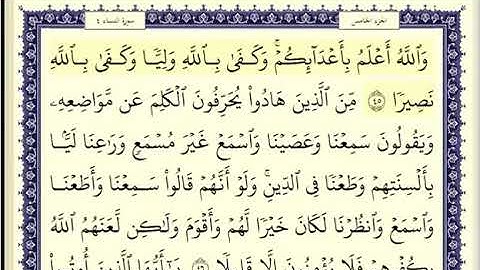 الجزء الخامس سورة النساء ٤
وَٱللَّهُ أَعۡلَمُ بِأَعۡدَآئِكُمۡۚ وَكَفَىٰ بِٱللَّهِ وَلِيّٗا وَكَفَىٰ بِٱللَّهِ
نَصِيرٗا ٤٥ مِّنَ ٱلَّذِينَ هَادُواْ يُحَرِّفُونَ ٱلۡكَلِمَ عَن مَّوَاضِعِهِۦ
وَيَقُولُونَ سَمِعۡنَا وَعَصَيۡنَا وَٱسۡمَعۡ غَيۡرَ مُسۡمَعٖ وَرَٰعِنَا لَيَّۢا
بِأَلۡسِنَتِهِمۡ وَطَعۡنٗا فِي ٱلدِّينِۚ وَلَوۡ أَنَّهُمۡ قَالُواْ سَمِعۡنَا وَأَطَعۡنَا
وَٱسۡمَعۡ وَٱنظُرۡنَا لَكَانَ خَيۡرٗا لَّهُمۡ وَأَقۡوَمَ وَلَٰكِن لَّعَنَهُمُ ٱللَّهُ
بِكُفۡرِهِمۡ فَلَا يُؤۡمِنُونَ إِلَّا قَلِيلٗا ٤٦ يَٰٓأَيُّهَا ٱلَّذِينَ أُوتُواْ